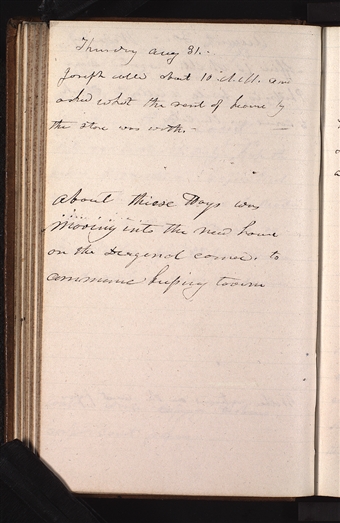 Thursday Aug 31. -
Joseph called about 10 A.M. and
asked what the rent of house by
the store was worth. -
About thiese Days was
moving into the new house
on the Diagend corner, to
commence keeping tavern